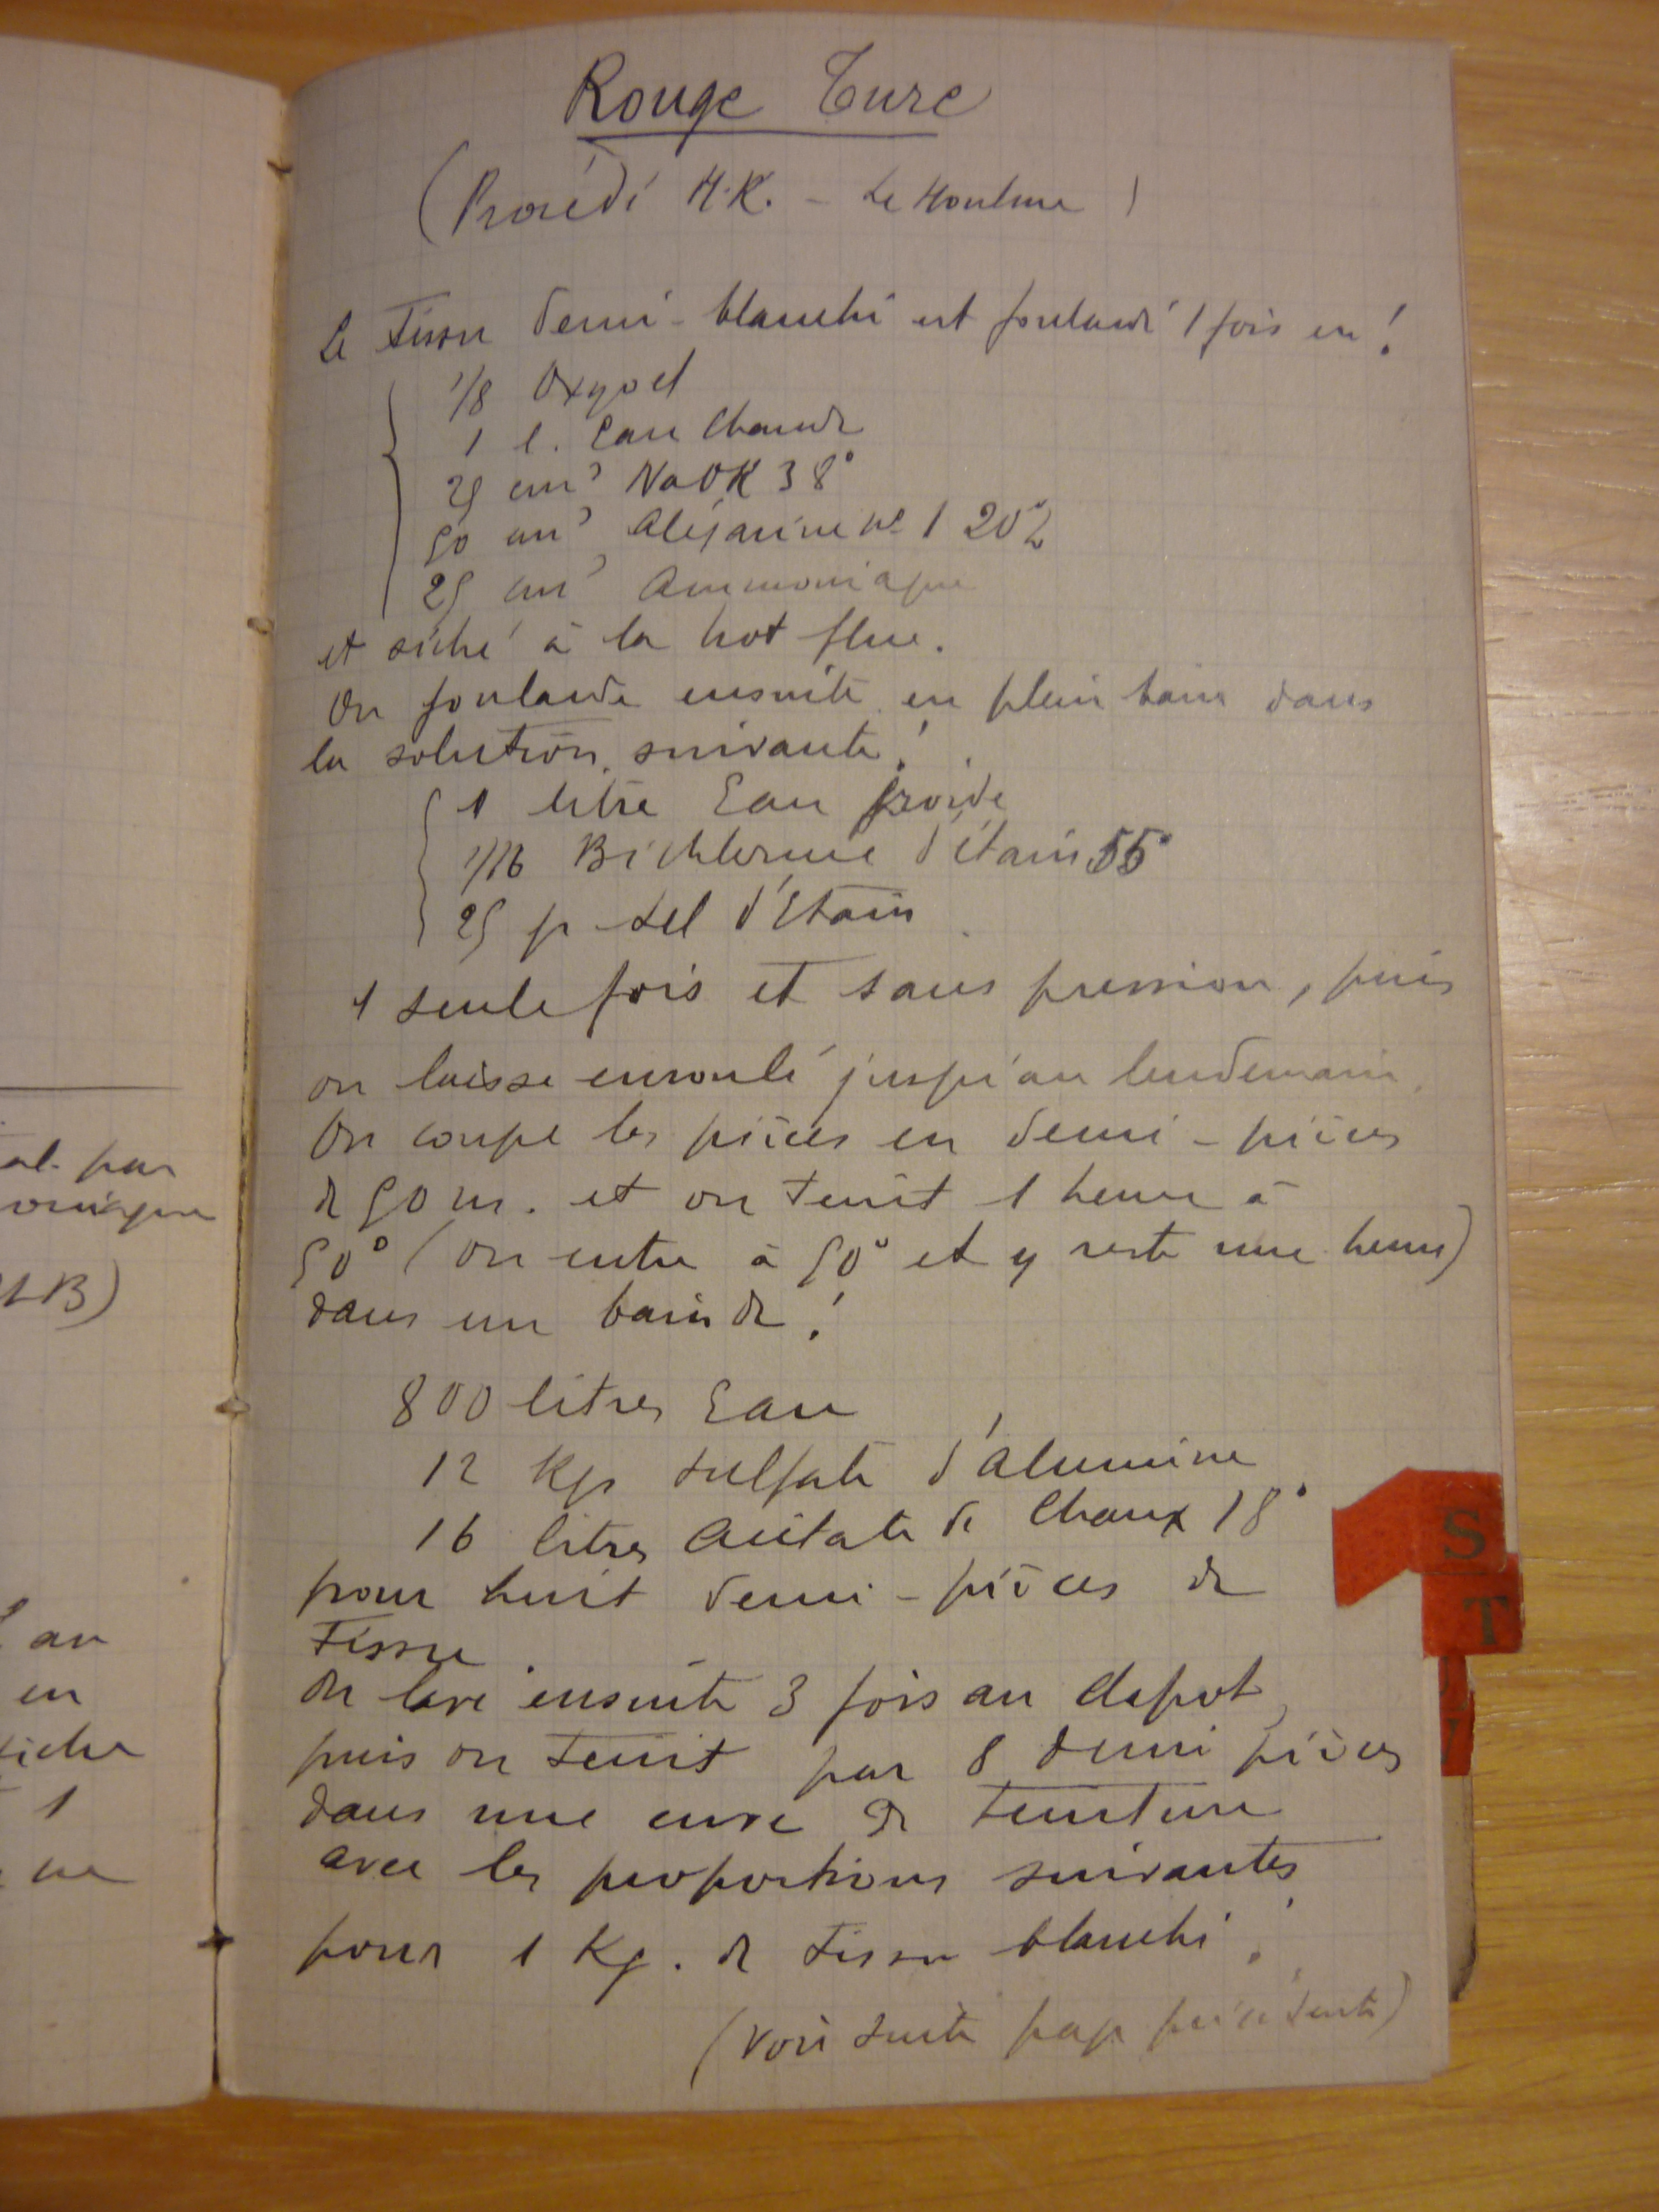 Rouge Turc
(Procédé H.K. - Le Houlme)
Le Tissu demi-blanchi est foulardé 1 fois en :
1/8 Oxyoel
1 l. Eau Chaude
25 cm³ NaOH 38°
50 cm³ Alizarine No 1 20%
25 cm³ Ammoniaque
et séché à la hot flue.
On foularde ensuite en plein bain dans
la solution suivante :
1 litre Eau froide
1/16 Bichlorure d'étain 55°
25 gr Sel d'Etain
1 seule fois et sans pression, puis
on laisse enroulé jusqu'au lendemain.
On coupe les pièces en demi-pièces
de 50 m. et on teint 1 heure à
50° (on entre à 50° et y reste une heure)
dans un bain de :
800 litres Eau
12 Kgs Sulfate d'Alumine
16 litres Acétate de Chaux 18°
pour huit demi-pièces de
Tissu.
On lave ensuite 3 fois au clapot,
puis on teint par 8 demi pièces
dans une cuve de teinture
avec les proportions suivantes
pour 1 Kg. de tissu blanchi :
(voir suite page précédente)
al. par
oniaque
LB)
au
en
1
S
T